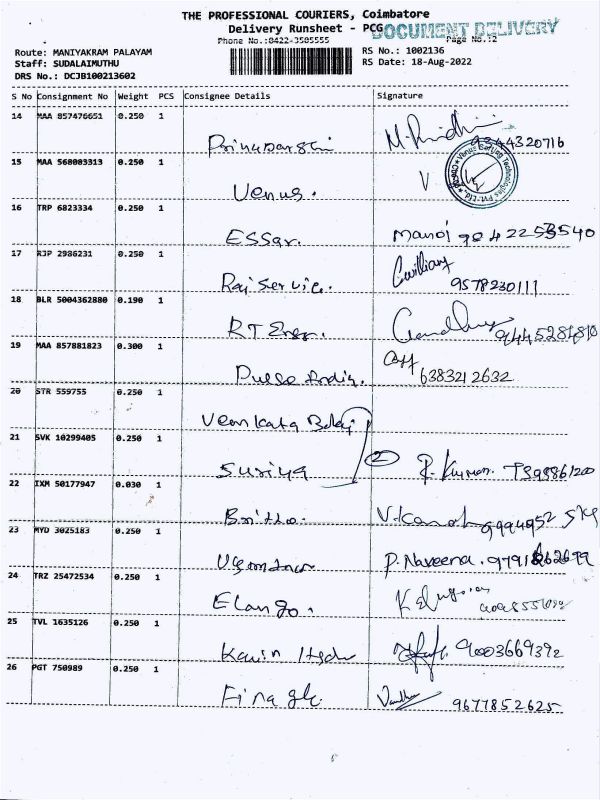 THE PROFESSIONAL COURIERS, Coimbatore
Delivery Runsheet - PCG
DOCUMENT DELIVERY
Phone No.:0422-3505555
Page No.:2
Route: MANIYAKRAM PALAYAM
RS No.: 1002136
Staff: SUDALAIMUTHU
RS Date: 18-Aug-2022
DRS No.: DCJB100213602
S No Consignment No Weight PCS Consignee Details Signature
14 MAA 857476651 0.250 1
9344320716
15 MAA 568083313 0.250 1
Venus. V
16 TRP 6823334 0.250 1
ESSar. Manoj
17 RJP 2986231 0.250 1
Raj Service. 9578230111
18 BLR 5004362880 0.190 1
RT Engr.
19 MAA 857881823 0.300 1
6383212632
20 STR 559755 0.250 1
Venkata Balaj
21 SVK 10299405 0.250 1
Suriya 2 R. Kumar.
22 IXM 50177947 0.030 1
Britto.
23 MYD 3025183 0.250 1
P. Naveena.
24 TRZ 25472534 0.250 1
Elango.
25 TVL 1635126 0.250 1
9003669392
26 PGT 750989 0.250 1
Finagle 9677852625